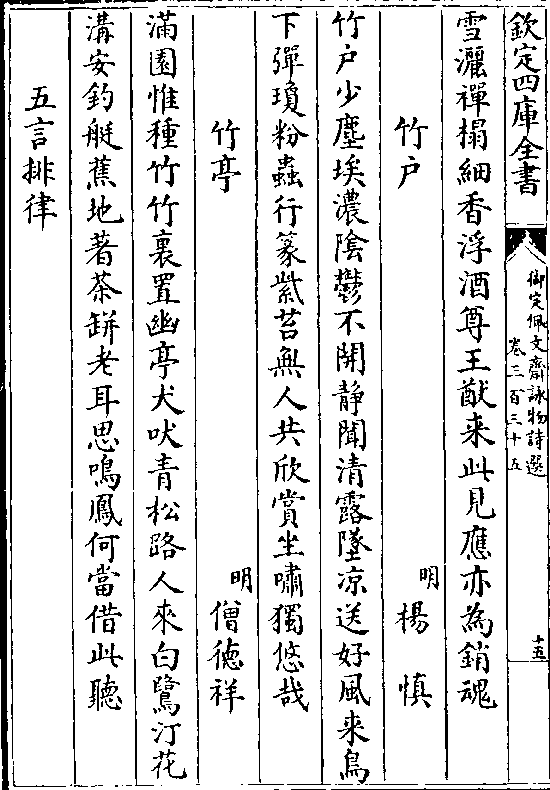 欽定四庫全書
御定佩文齋詠物詩選
卷三百三十五
十五
雪灑禪榻細香浮酒尊王猷来此見應亦為銷魂
竹户
明
楊慎
竹户少塵埃濃陰鬱不開静聞清露墜凉送好風来鳥
下彈瓊粉蟲行篆紫苔無人共欣賞坐嘯獨悠哉
竹亭
明
僧德祥
滿園惟種竹竹裏置幽亭犬吠青松路人來白鷺汀花
溝安釣艇蕉地著茶缾老耳思鳴鳳何當借此聽
五言排律